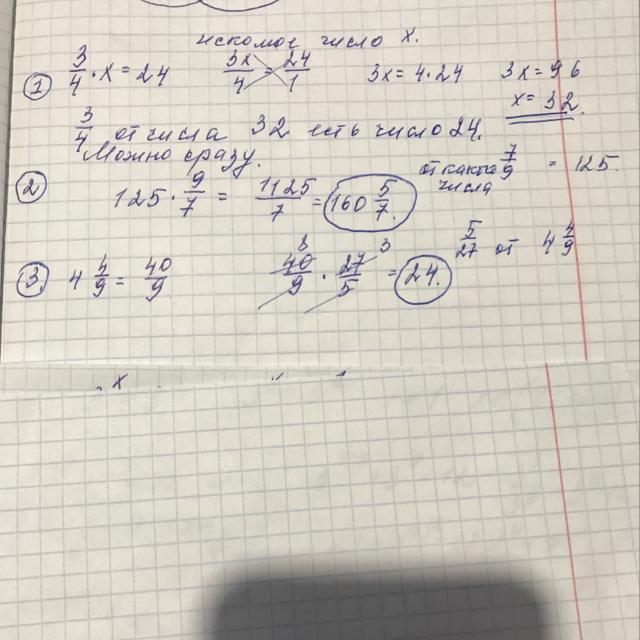 искомое число x.
① 3/4 · x = 24 3x/4 = 24/1 3x = 4·24 3x = 96
x = 32.
3/4 от числа 32 есть число 24.
Можно сразу.
② 125 · 9/7 = 1125/7 = 160 5/7. от какого числа 7/9 = 125.
5/27 от 4 4/9
③ 4 4/9 = 40/9 8 40/9 · 27/5 3 = 24.
x